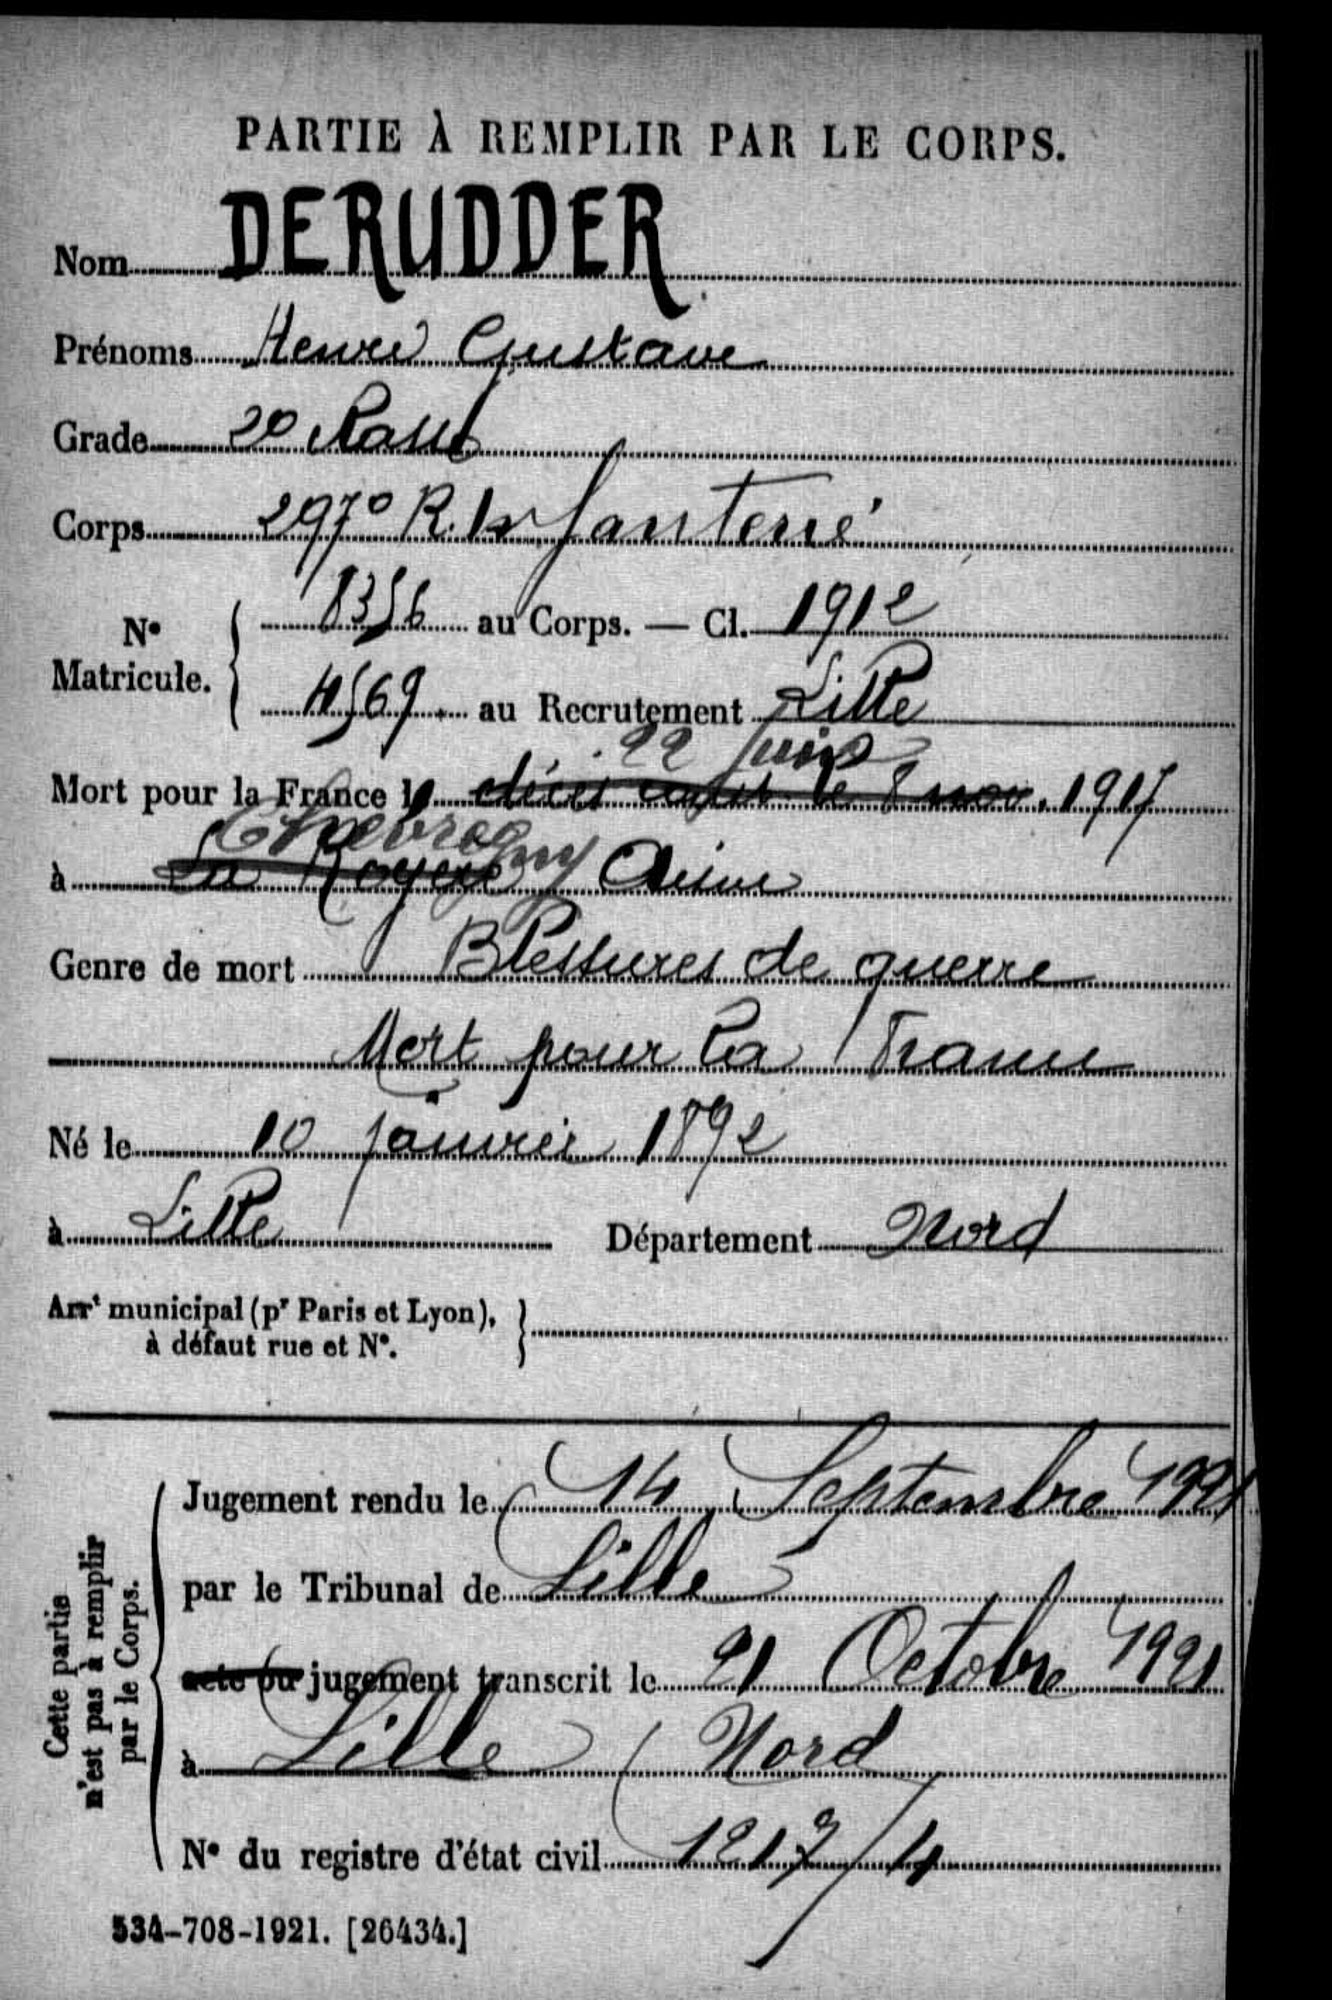 PARTIE À REMPLIR PAR LE CORPS.
Nom DERUDDER
Prénoms Henri Gustave
Grade 2e classe
Corps 297e R. Infanterie
8356 au Corps. — Cl. 1912
N° Matricule.
4569 au Recrutement Lille
22 Juin
Mort pour la France le décès constaté le 8 nov. 1917
Chevregny
à La Royere Aisne
Genre de mort Blessures de guerre
Mort pour la France
Né le 10 janvier 1892
à Lille Département Nord
Arrt municipal (pr Paris et Lyon),
à défaut rue et N°.
Cette partie
n'est pas à remplir
par le Corps.
Jugement rendu le 14 Septembre 1921
par le Tribunal de Lille
acte ou jugement transcrit le 21 Octobre 1921
à Lille Nord
N° du registre d'état civil 1217/4
534-708-1921. [26434.]